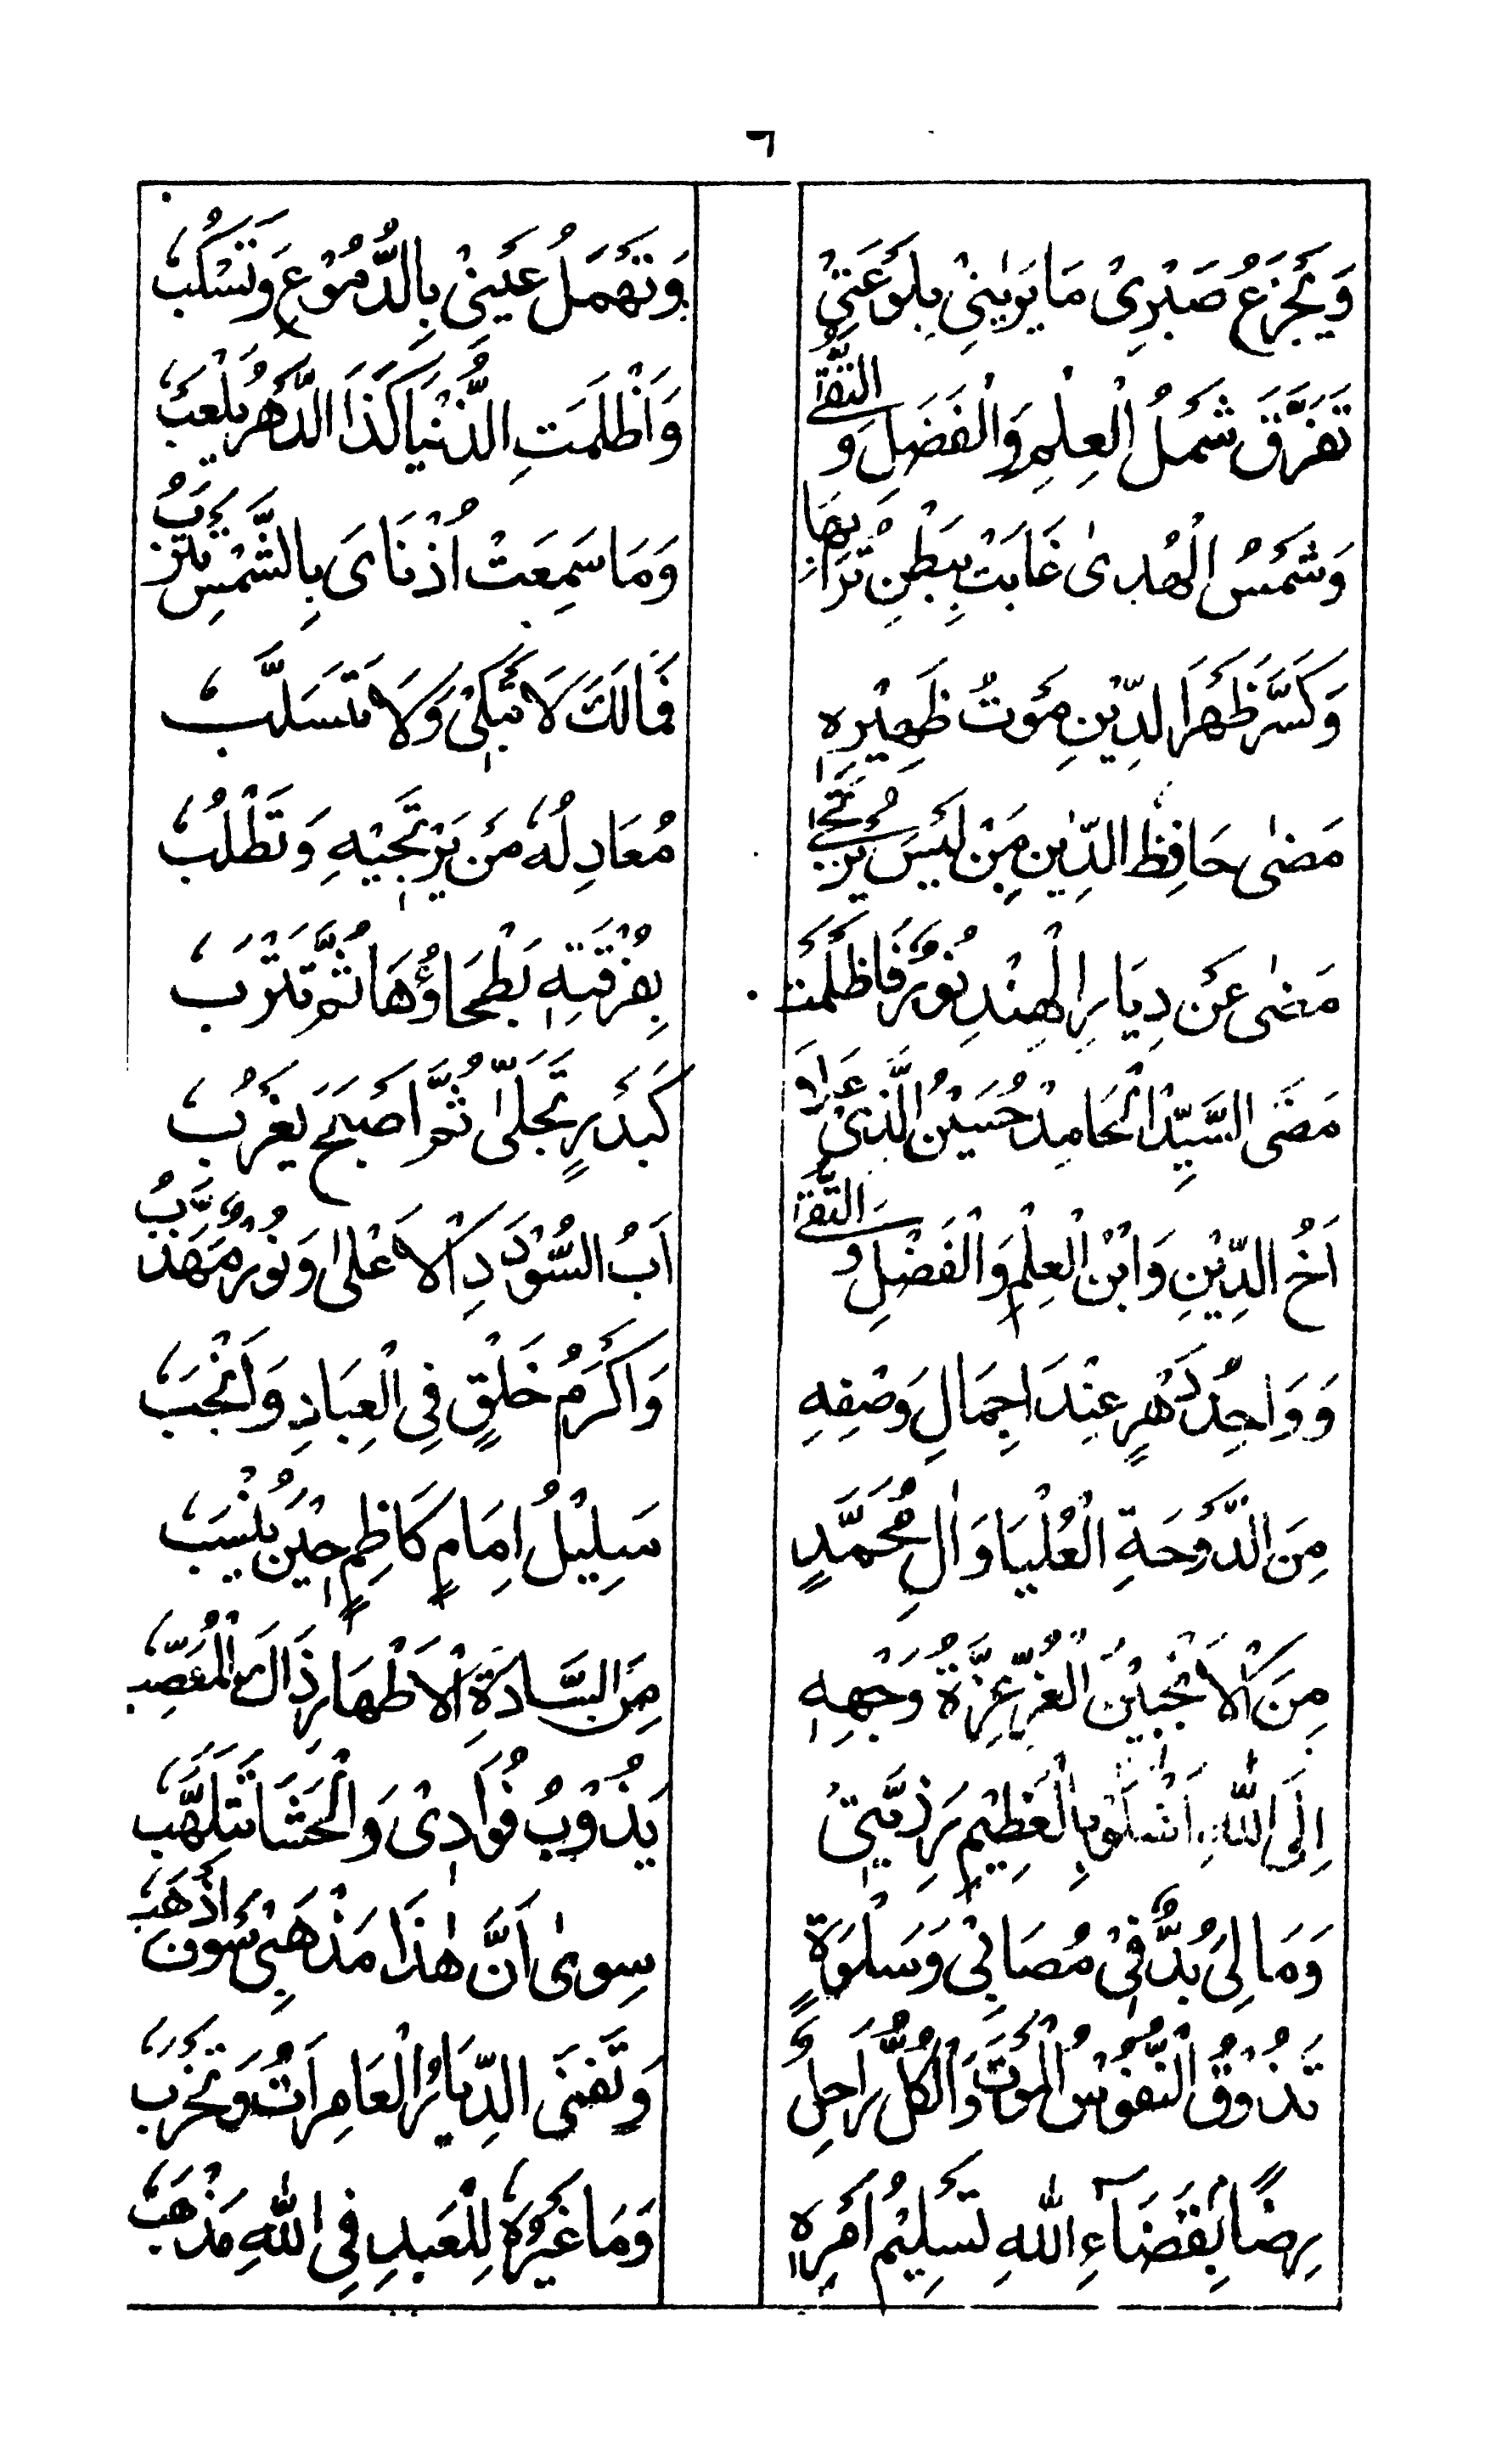 ٦
وَيَجْزَعُ صَبْرِىْ مَا يَرَىٰنِىْ بِلَوْعَتِىْ
وَتَهْمَلُ عَيْنِىْ بِالدُّمُوْعِ وَتَسْكُبُ
تَفَرَّقَ شَمْلُ الْعِلْمِ وَالْفَضْلِ وَالتُّقٰى
وَاَظْلَمَتِ الدُّنْيَا كَذَا الدَّهْرُ يَلْعَبُ
وَشَمْسُ الْهُدىٰ غَابَتْ بِبَطْنِ تُرَابِهَا
وَمَا سَمِعَتْ اُذْنَاىَ بِالشَّمْسِ تَتْرَبُ
وَكَسَّرَ ظَهْرَ الدِّيْنِ مَوْتُ ظَهِيْرِهٖ
فَمَا لَكَ لَا تَبْكِىْ وَلَا تَتَسَلَّبُ
مَضٰى حَافِظُ الدِّيْنِ مَنْ لَيْسَ يُرْتَجٰى
مُعَادِلُهُ مَنْ يَرْتَجِيْهِ وَتَطْلُبُ
مَضٰى عَنْ دِيَارِ الْهِنْدِ نُوْرٌ فَاَظْلَمَتْ
بِفُرْقَتِهٖ بَطْحَاؤُهَا ثُمَّ تَتْرَبُ
مَضَى السَّيِّدُ الْحَامِدْ حُسَيْنُ الَّذِىْ عَلَا
كَبَدْرٍ تَجَلّٰى ثُمَّ اَصْبَحَ يَغْرُبُ
اَخُ الدِّيْنِ وَابْنُ الْعِلْمِ وَالْفَضْلِ وَالتُّقٰى
اَبُ السُّوْدَدِ الْاَعْلىٰ وَنُوْرٌ مُهَذَّبُ
وَوَاحِدُ دَهْرٍ عِنْدَ اِجْمَالِ وَصْفِهِ
وَاَكْرَمُ خَلْقٍ فِى الْعِبَادِ وَاَنْجَبُ
مِنَ الدَّوْحَةِ الْعُلْيَا وَاٰلِ مُحَمَّدٍ
سَلِيْلُ اِمَامٍ كَاظِمٍ حِيْنَ يُنْسَبُ
مِنَ الْاَنْجَبِيْنَ الْغُرِّ عِزَّةُ وَجْهِهٖ
مِنَ السَّادَةِ الْاَطْهَارِ ذَاكَ الْمُعَصَّبُ
اِلَى اللّٰهِ اَشْكُوْ بِالْعَظِيْمِ رَزِيَّتِىْ
يَذُوْبُ فُوَادِىْ وَالْحَشَا تَتَلَهَّبُ
وَمَا لِىَ بُدٌّ فِىْ مُصَابِىْ وَسَلْوَةٍ
سِوىٰ اَنَّ هٰذَا مَذْهَبِىْ سَوْفَ اَذْهَبُ
تَذُوْقُ النُّفُوْسُ الْمَوْتَ وَالْكُلُّ رَاحِلٌ
وَتَفْنَى الدِّيَارُ الْعَامِرَاتُ وَتَخْرَبُ
رِضًا بِقَضَاءِ اللّٰهِ تَسْلِيْمُ اَمْرِهٖ
وَمَا غَيْرُهُ لِلْعَبْدِ فِى اللّٰهِ مَذْهَبُ